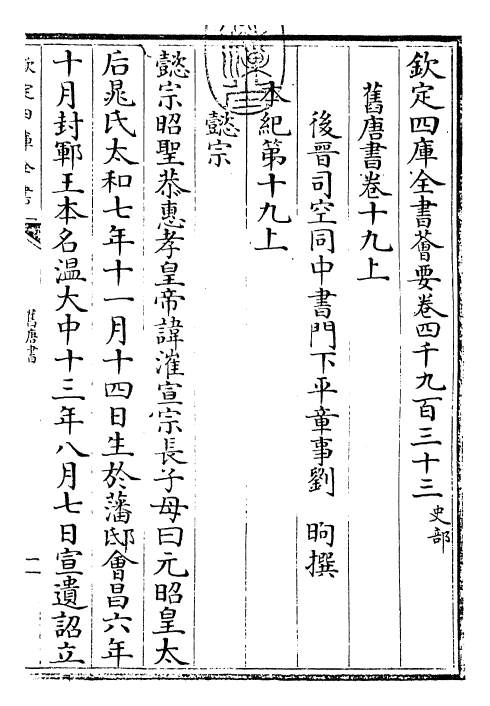 欽定四庫全書薈要卷四千九百三十三史部
舊唐書卷十九上
後晉司空同中書門下平章事劉 昫撰
本紀第十九上
懿宗
懿宗昭聖恭惠孝皇帝諱漼宣宗長子母曰元昭皇太
后晁氏太和七年十一月十四日生於藩邸會昌六年
十月封鄆王本名溫大中十三年八月七日宣遺詔立
欽定四庫全書
舊唐書
一